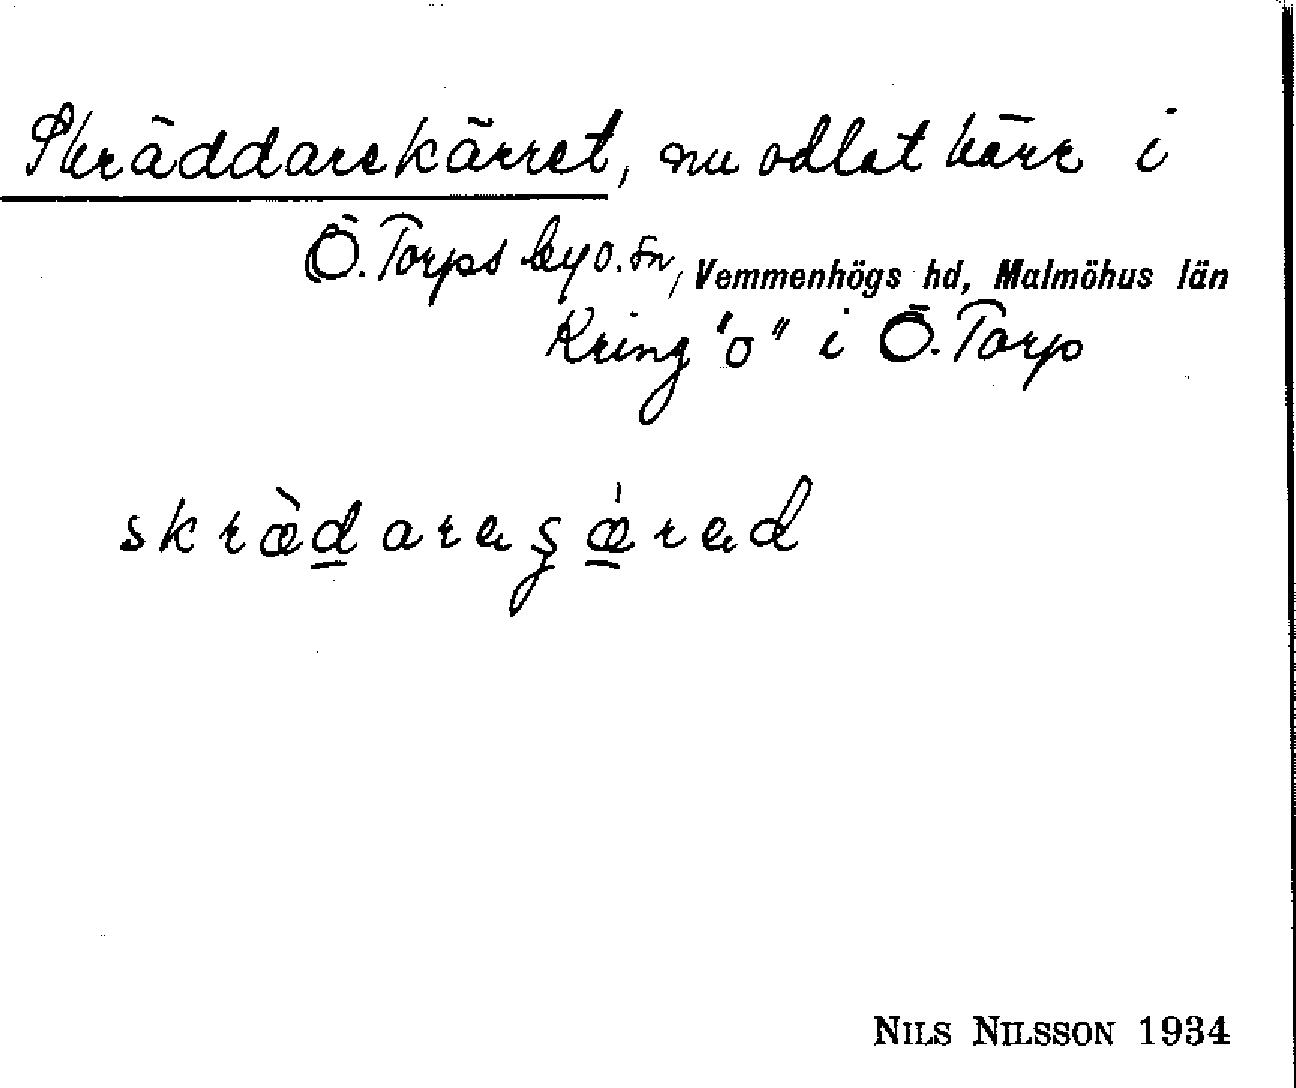 Skräddarekärret, nu odlat kärr i
Ö. Torps by o. sn, Vemmenhögs hd, Malmöhus län
Kring "o" i Ö. Torp
skræ̀d̲areʂæ̲̍red
NILS NILSSON 1934